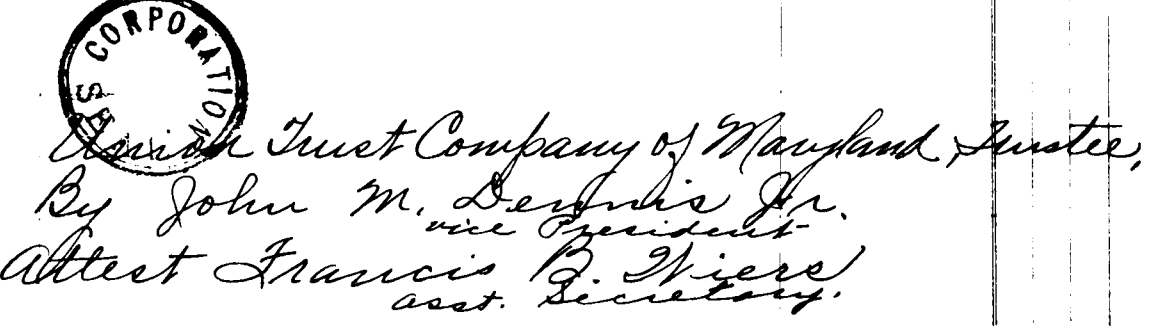 CORPORATION
Union Trust Company of Maryland, Trustee,
By John M. Dennis Jr.
vice President
Attest Francis B. Wiers
asst. Secretary.